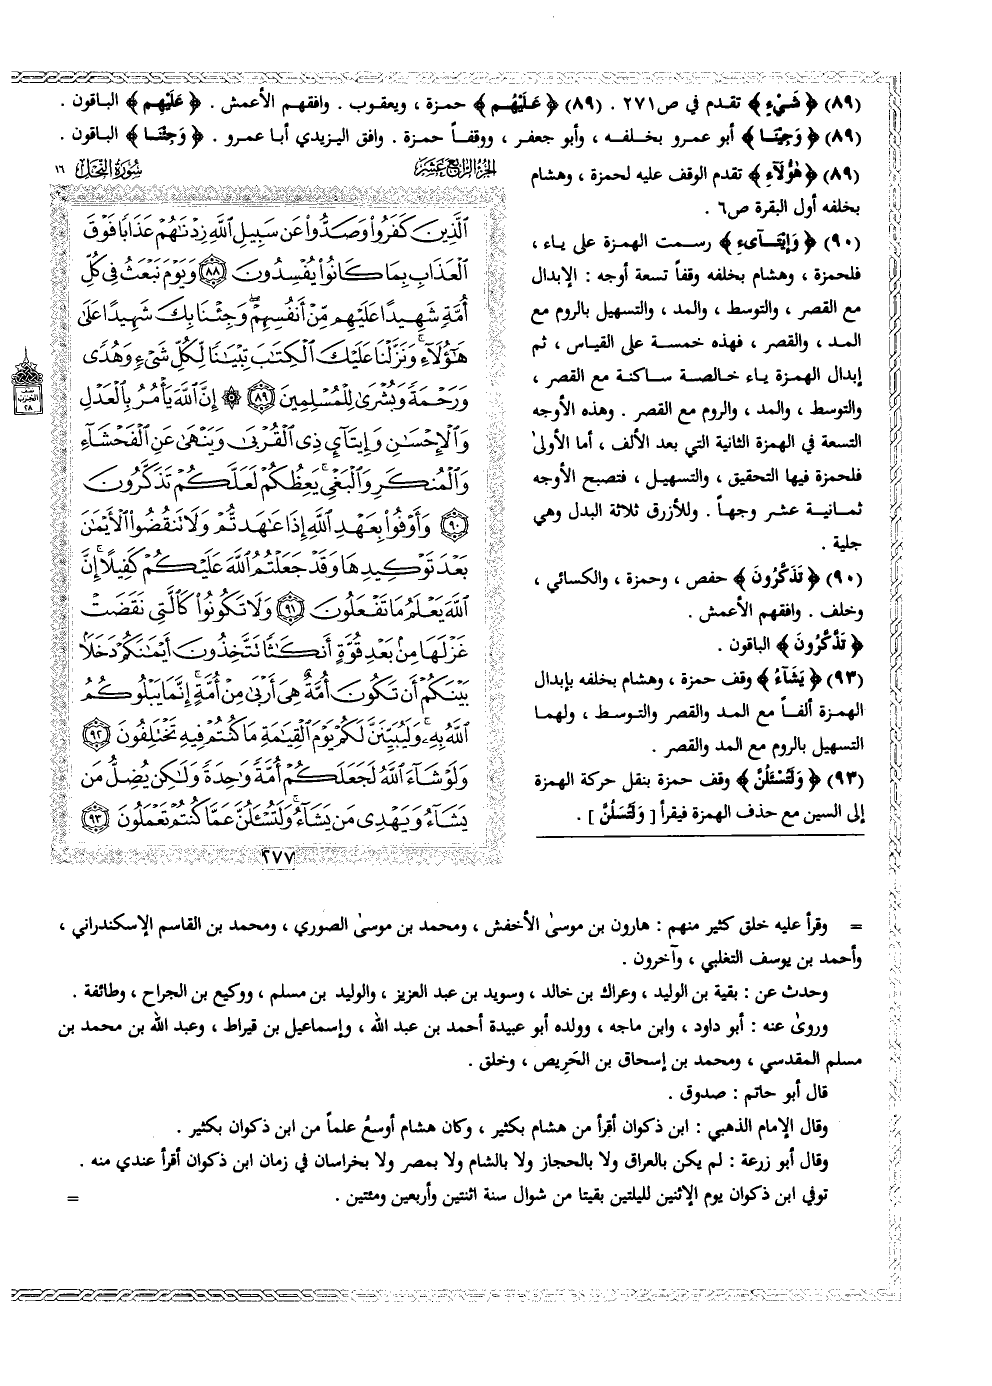 (٨٩) ﴿ شَيْءٍ ﴾ تقدم في ص٢٧١ . (٨٩) ﴿ عَلَيْهُم ﴾ حمزة ، ويعقوب . وافقهم الأعمش . ﴿ عَلَيْهِم ﴾ الباقون .
(٨٩) ﴿ وَجِيْنَا ﴾ أبو عمرو بخلفه ، وأبو جعفر ، ووقفاً حمزة . وافق اليزيدي أبا عمرو . ﴿ وَجِئْنَا ﴾ الباقون .
(٨٩) ﴿ هَٰؤُلَآءِ ﴾ تقدم الوقف عليه لحمزة ، وهشام
بخلفه أول البقرة ص٦ .
(٩٠) ﴿ وَإِيتَآىِٕ ﴾ رسمت الهمزة على ياء ،
فلحمزة ، وهشام بخلفه وقفاً تسعة أوجه : الإبدال
مع القصر ، والتوسط ، والمد ، والتسهيل بالروم مع
المد ، والقصر ، فهذه خمسة على القياس ، ثم
إبدال الهمزة ياء خالصة ساكنة مع القصر ،
والتوسط ، والمد ، والروم مع القصر . وهذه الأوجه
التسعة في الهمزة الثانية التي بعد الألف ، أما الأولىٰ
فلحمزة فيها التحقيق ، والتسهيل ، فتصبح الأوجه
ثمانية عشر وجهاً . وللأزرق ثلاثة البدل وهي
جلية .
(٩٠) ﴿ تَذَكَّرُونَ ﴾ حفص ، وحمزة ، والكسائي ،
وخلف . وافقهم الأعمش .
﴿ تَذَّكَّرُونَ ﴾ الباقون .
(٩٣) ﴿ يَشَآءُ ﴾ وقف حمزة ، وهشام بخلفه بإبدال
الهمزة ألفاً مع المد والقصر والتوسط ، ولهما
التسهيل بالروم مع المد والقصر .
(٩٣) ﴿ وَلَتُسْـَٔلُنَّ ﴾ وقف حمزة بنقل حركة الهمزة
إلى السين مع حذف الهمزة فيقرأ [ وَلَتُسَلُنَّ ] .
الجزء الرابع عشر
سورة النحل ١٦
ٱلَّذِينَ كَفَرُوا۟ وَصَدُّوا۟ عَن سَبِيلِ ٱللَّهِ زِدْنَٰهُمْ عَذَابًا فَوْقَ
ٱلْعَذَابِ بِمَا كَانُوا۟ يُفْسِدُونَ ٨٨ وَيَوْمَ نَبْعَثُ فِى كُلِّ
أُمَّةٍ شَهِيدًا عَلَيْهِم مِّنْ أَنفُسِهِمْ ۖ وَجِئْنَا بِكَ شَهِيدًا عَلَىٰ
هَٰٓؤُلَآءِ ۚ وَنَزَّلْنَا عَلَيْكَ ٱلْكِتَٰبَ تِبْيَٰنًا لِّكُلِّ شَىْءٍ وَهُدًى
وَرَحْمَةً وَبُشْرَىٰ لِلْمُسْلِمِينَ ٨٩ ۞ إِنَّ ٱللَّهَ يَأْمُرُ بِٱلْعَدْلِ
وَٱلْإِحْسَٰنِ وَإِيتَآئِ ذِى ٱلْقُرْبَىٰ وَيَنْهَىٰ عَنِ ٱلْفَحْشَآءِ
وَٱلْمُنكَرِ وَٱلْبَغْىِ ۚ يَعِظُكُمْ لَعَلَّكُمْ تَذَكَّرُونَ
٩٠ وَأَوْفُوا۟ بِعَهْدِ ٱللَّهِ إِذَا عَٰهَدتُّمْ وَلَا تَنقُضُوا۟ ٱلْأَيْمَٰنَ
بَعْدَ تَوْكِيدِهَا وَقَدْ جَعَلْتُمُ ٱللَّهَ عَلَيْكُمْ كَفِيلًا ۚ إِنَّ
ٱللَّهَ يَعْلَمُ مَا تَفْعَلُونَ ٩١ وَلَا تَكُونُوا۟ كَٱلَّتِى نَقَضَتْ
غَزْلَهَا مِنۢ بَعْدِ قُوَّةٍ أَنكَٰثًا تَتَّخِذُونَ أَيْمَٰنَكُمْ دَخَلًۢا
بَيْنَكُمْ أَن تَكُونَ أُمَّةٌ هِىَ أَرْبَىٰ مِنْ أُمَّةٍ ۚ إِنَّمَا يَبْلُوكُمُ
ٱللَّهُ بِهِۦ ۚ وَلَيُبَيِّنَنَّ لَكُمْ يَوْمَ ٱلْقِيَٰمَةِ مَا كُنتُمْ فِيهِ تَخْتَلِفُونَ ٩٢
وَلَوْ شَآءَ ٱللَّهُ لَجَعَلَكُمْ أُمَّةً وَٰحِدَةً وَلَٰكِن يُضِلُّ مَن
يَشَآءُ وَيَهْدِى مَن يَشَآءُ ۚ وَلَتُسْـَٔلُنَّ عَمَّا كُنتُمْ تَعْمَلُونَ ٩٣
٢٧٧
نصف
الحزب
٢٨
= وقرأ عليه خلق كثير منهم : هارون بن موسىٰ الأخفش ، ومحمد بن موسىٰ الصوري ، ومحمد بن القاسم الإسكندراني ،
وأحمد بن يوسف التغلبي ، وآخرون .
وحدث عن : بقية بن الوليد ، وعراك بن خالد ، وسويد بن عبد العزيز ، والوليد بن مسلم ، ووكيع بن الجراح ، وطائفة .
وروىٰ عنه : أبو داود ، وابن ماجه ، وولده أبو عبيدة أحمد بن عبد الله ، وإسماعيل بن قيراط ، وعبد الله بن محمد بن
مسلم المقدسي ، ومحمد بن إسحاق بن الحَرِيص ، وخلق .
قال أبو حاتم : صدوق .
وقال الإمام الذهبي : ابن ذكوان أقرأ من هشام بكثير ، وكان هشام أوسعُ علماً من ابن ذكوان بكثير .
وقال أبو زرعة : لم يكن بالعراق ولا بالحجاز ولا بالشام ولا بمصر ولا بخراسان في زمان ابن ذكوان أقرأ عندي منه .
توفي ابن ذكوان يوم الإثنين لليلتين بقيتا من شوال سنة اثنتين وأربعين ومئتين . =